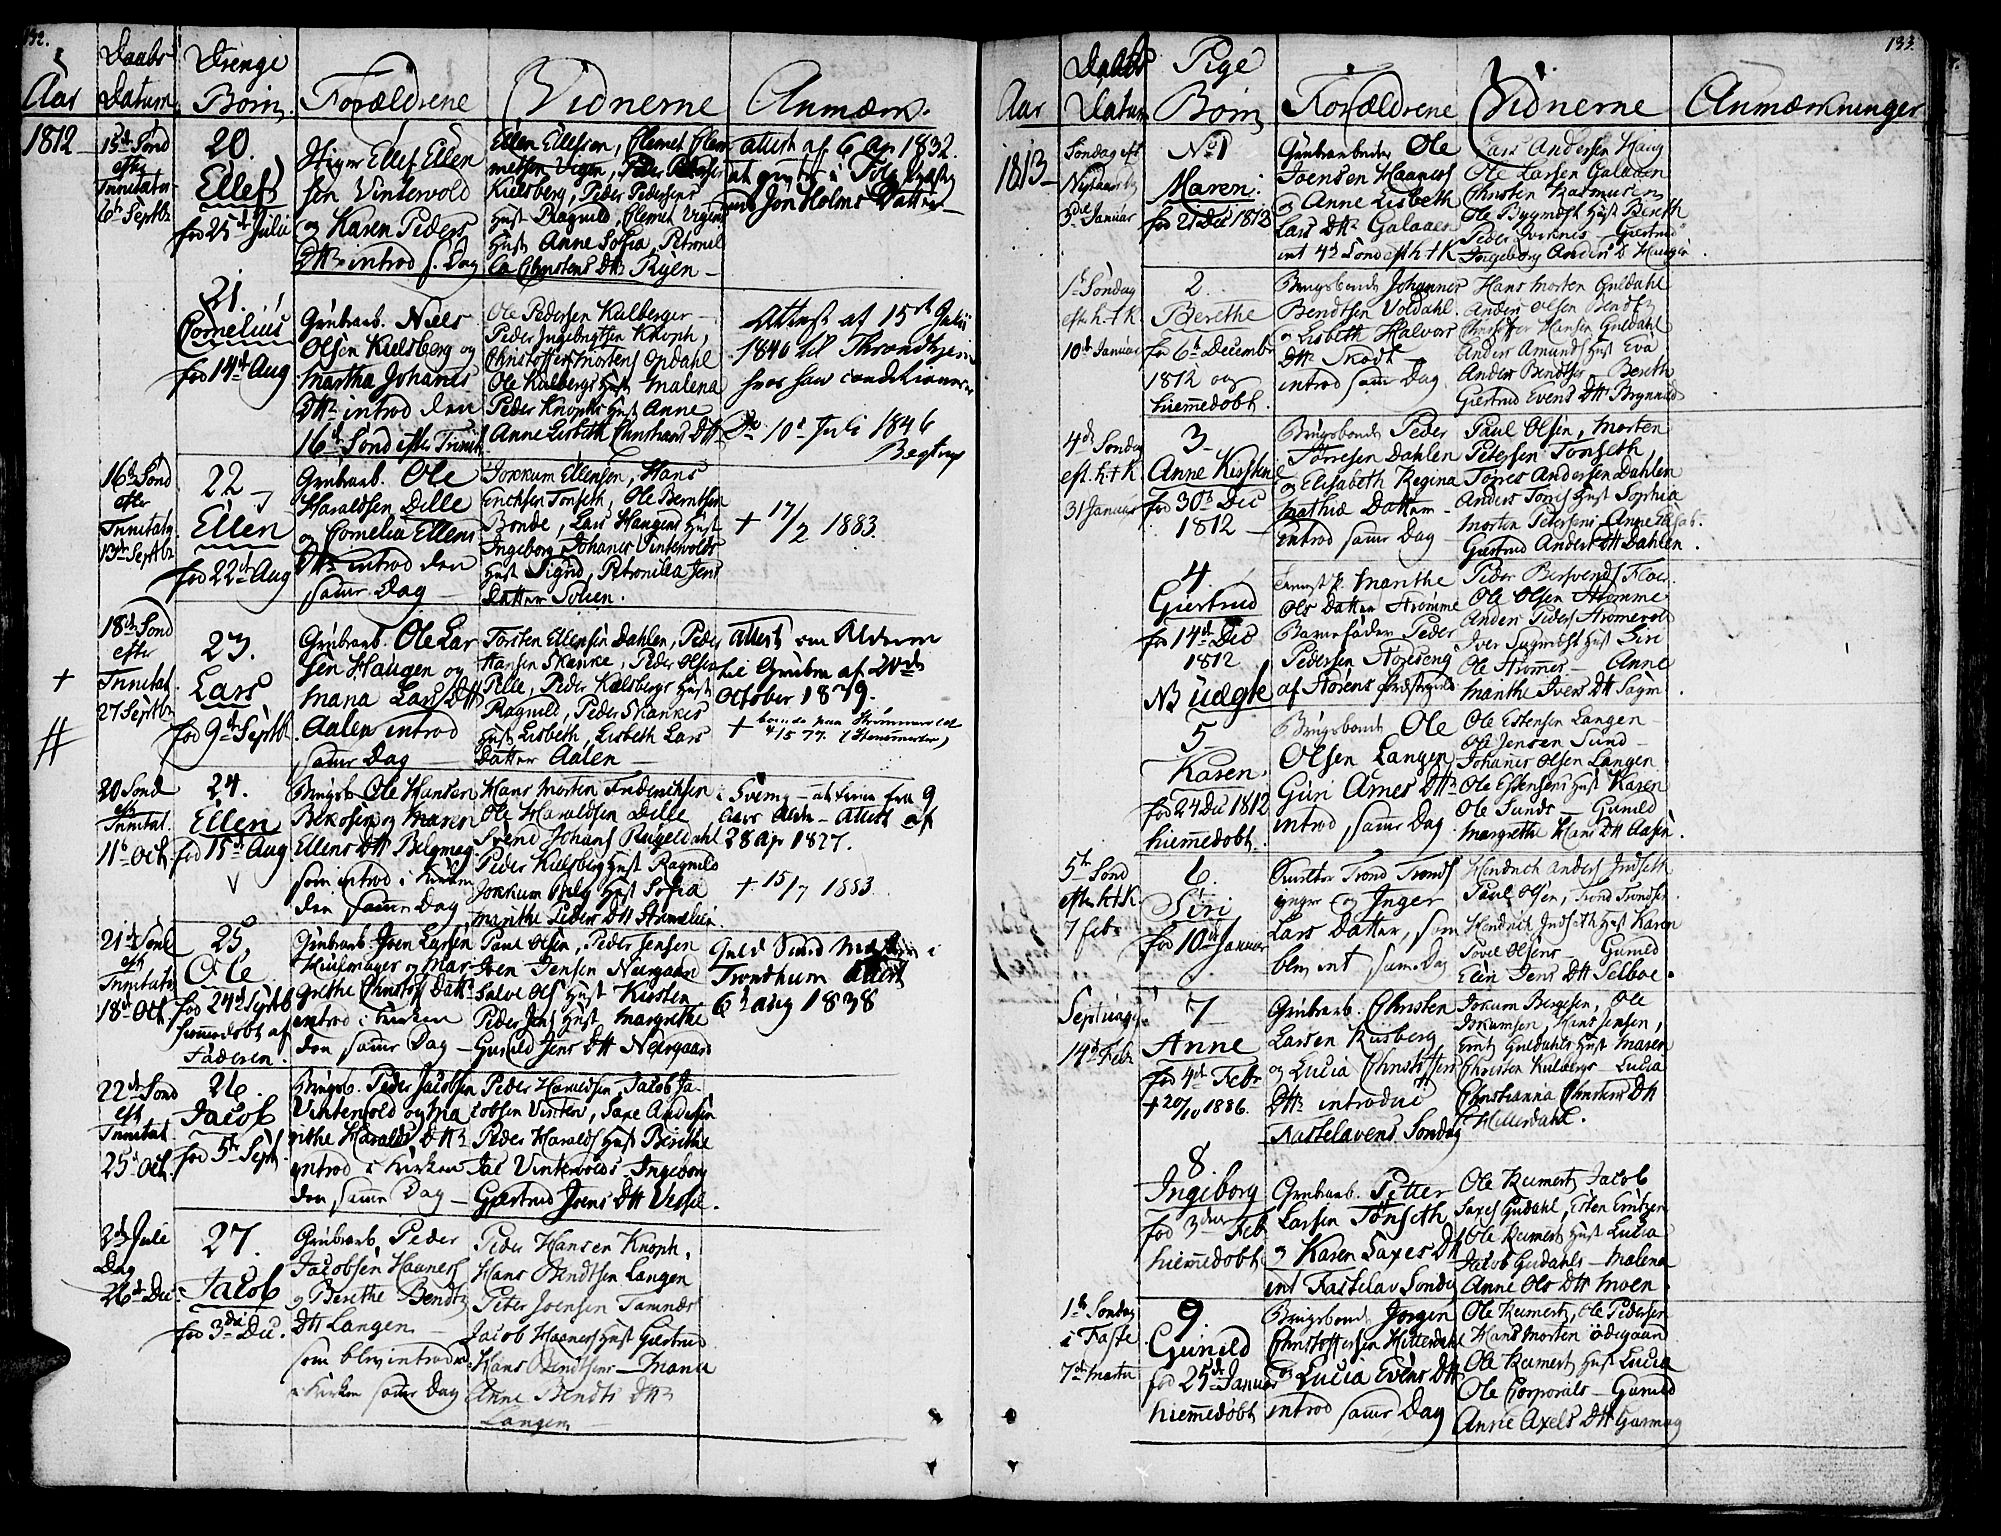 132.
Aar
Daabs
Datum
Drenge
Børn.
Forældrene
Vidnerne
Anmærk.
1812
15de Sønd
efter
Trinitatis
6te Septbr
20.
Ellef
fød 25de Julii
Stiger Ellef Ellen
sen Vintervold
og Karen Peders
Dttr introd s. Dag
Ellen Ellefsen, Clemet Clem
metsen Vigen, Peder Pedersen
Kielsberg, Peder Pedersens
Hust Ragnild, Clemet Vigens
Hust Anne Sofia, Petronel
la Christens Dttr Ryen
attest af 6 Ap 1832.
at gifte i
med Jon Holms Datter
21.
Cornelius
fød 14de Aug
Grubearb. Niels
Olsen Kielsberg og
Martha Johanes
Dttr introd den
16de Sønd efter Trinit
Ole Pedersen Kulberger
Peder Ingebrigtsen Knoph,
Christoffer Mortens Opdahl
Ole Kulbergs Hust Malena
Peder Knophs Hust Anne
Anne Lisbeth Christians Dttr
Attest af 15de Julii
1840 til Throndhjem
hvor han conditionerer
Do 10de Juli 1846
16de Sønd
efter
Trinitatis
13de Septbr
22
Ellen
fød 22de Aug
Grubearb. Ole
Haraldsen Dille
og Cornelia Ellens
Dttr introd den
samme Dag
Jokkum Ellensen, Hans
Erichsen Tønseth, Ole Berntsen
Bonde, Lars Haugens Hust
Ingeborg Johanes Vintervolds
Hust Sigrid, Petronilla Jens
Datter Solien.
+ 17/2 1883.
18de Sønd
efter
Trinitat.
27 Septbr
+
#
23.
Lars
fød 9de Septbr
Grubearb. Ole Lar
sen Haugen og
Maria Lars Dtt
Aalen introd
samme Dag
Torsten Ellensen Dahlen, Peder
Hansen Skanke, Peder Olsen
Pelle, Peder Kielsbergs Hust
Ragnild, Peder Skankes
Hust Lisbeth, Lisbeth Lars
Datter Aalen
Attest om Alderen
til Gruben af 20de
October 1879.
+ 4/5 77.
20 Sønd
eft
Trinitat.
11te Oct.
24.
Ellen
fød 15de Aug
V
Brugsb. Ole Hansen
Bekosen og Maren
Ellens Dtt
som introd i Kirken
den samme Dag
Hans Morten Friderichsen
Ole Haraldsen Dille
Svend Johans Rugeldahl
Peder Kielsberg Hust Ragnild
Jokkum Hust Sofia
Marithe Peders Dtt
Aars Alder - Attest af
28 Ap 1827.
+ 15/7 1883
21de Sønd
eft
Trinitatis
18de Oct.
25.
Ole
fød 24de Septb
hjemmedøbt af
Faderen.
Grubearb. Iven Larsen
Huilmager og Mar
grethe Christoff Datter
introd i Kirken
den samme Dag
Paul Olsen, Peder Jensen
Iven Jensen Neergaard
Salve Ols Hust Kirsten
Peder Jens Hust Margrethe
Gunild Jens Dtt Neergaard
Guld Smed i
Trondhiem Attest
6te Aug 1838
22de Sønd
eft
Trinitat.
25de Oct.
26.
Jacob
fød 5te Sept
Brugsb. Peder Jacobsen
Vintervold og Ma
rithe Haralds Dttr
introd i Kirken
den samme Dag
Peder Haraldsen, Jacob Ja
cobsen Vinter, Saxe Andersen
Peder Haralds Hust Birithe
Jac Vintervolds - Ingeborg
Giertrud Ivens Dtt Vessel.
2de Jule
Dag
26de Dec
27.
Jacob
fød 3die Dec.
Grubearb Peder
Jacobsen Haaness
og Berithe Bendts
Dtt Langen
som blev introd
i Kirken samme Dag
Peder Hansen Knoph.
Hans Bendtsen Langen
Peter Joensen Tamnæs
Jacob Haaness Hust Giertrud
Hans Bendtsens - Maria
Anne Bendts Dttr
Langen
133.
Aar
Daabs
Datum
Pige
Børn
Forældrene
Vidnerne
Anmærkninger
1813
Søndag eft
Nytaars
3die Januar
No 1
Maren.
fød 21 Dec 1812
Grubearbeider Ole
Joensen Haaness
og Anne Lisbeth
Lars Dttr Galaaen
int 4de Sønd eft h.t.K.
Lars Andersen Haug
Ole Larsen Galaaen
Christen Rasmusen
Ole Bygmest Hust Berith
Peder Giertrud
Ingeborg Anders D Haugen
1ste Søndag
eft h.t.K.
10de Januar
2.
Berethe
fød 6te Decembr
1812 og
hiemmedøbt.
Brugsbonde Johannes
Bendtsen Voldahl
og Lisbeth Halvors
Dttr Skodt
introd samme Dag
Hans Morten Guldahl
Anders Olsen Bendts
Christoffer Hansen Guldahl
Anders Amunds Hust Eva
Anders Bendtsens - Berith
Giertrud Evens Dtt Brynnild
4de Søndag
eft. h.t.K.
31 Januar
3
Anne Kirstine
fød 30te Dec
1812
Brugsbonde Peder
Tørresen Dahlen
og Elisabeth Regina
Mathiæ Datter
introd samme Dag
Paul Olsen, Morten
Petersen Tønseth
Tørres Andersen Dahlen
Anders Torris Hust Sophia
Morten Petersens Anne Elisab.
Giertrud Anders Dtt Dahlen.
4.
Giertrud
fød 14de Dec
1812
NB uægte
Marithe
Ols Datter Strømme
Barnefader Peder
Pedersen Storeseng
af Størens Præstegield
Peder Bersvends Floe
Ole Olsen Strømme
Anders Peders Stromevold
Iver Sugmøst Hust Siri
Ole Strømes - Anne
Marithe Ivers Dtt Sagm.
5
Karen.
fød 24 Dec 1812
hiemmedøbt.
Brugsbonde Ole
Olsen Langen
Guri Arnes Dttr
introd samme Dag
Ole Estensen Langen
Ole Jensen Sund
Johanes Olsen Langen
Ole Estensens Hust Karen
Ole Sunds - Gunild
Margrethe Hans Dtt Aasen.
5te Sønd
efter h.t.K.
7 Febr
6.
Siri
fød 10de Januar
Trond Tronds
ynger og Inger
Lars Datter, som
blev int samme Dag
Hendrich Anders Indseth
Paul Olsen, Trond Trondsen
Hendrich Indseth Hust Karen
Povel Olsens - Gunild
Elen Jens Dtt Selboe.
Septuages
14de Febr
7
Anne
fød 4de Febr
+ 20/10 1886.
Grubearb. Christen
Larsen Riisberg
og Lucia Christoffers
Dttr introduc
Fastelavens Søndag
Jokum Bergesen, Ole
Jokumsen, Hans Jensen,
Erich Guldahls Hust Maren
Christen Kulbergs - Lucia
Christianna Christens Dtt
Hitterdahl.
8.
Ingeborg
fød 3die Feb
hiemmedøbt
Grubearb. Petter
Larsen Tønseth
og Karen Saxes Dtt
int Fastelav Søndag
Ole Reimert, Jacob
Saxes Gudahl, Esten Erichsen
Ole Reimerts Hust Lucia
Jacob Gudahls - Malena
Anne Ols Dtt Moen.
1ste Søndag
i Faste
7de Martii
9.
Gunild
fød 25de Januar
hiemmedøbt
Brugsbonde Jørgen
Christoffersen Hitterdahl
og Lucia Evens Dtt
introd samme Dag
Ole Reimert, Ole Pedersen
Hans Morten Ødegaard
Ole Reimerts Hust Lucia
Ole Corporals - Gunild
Anne Axels Dtt